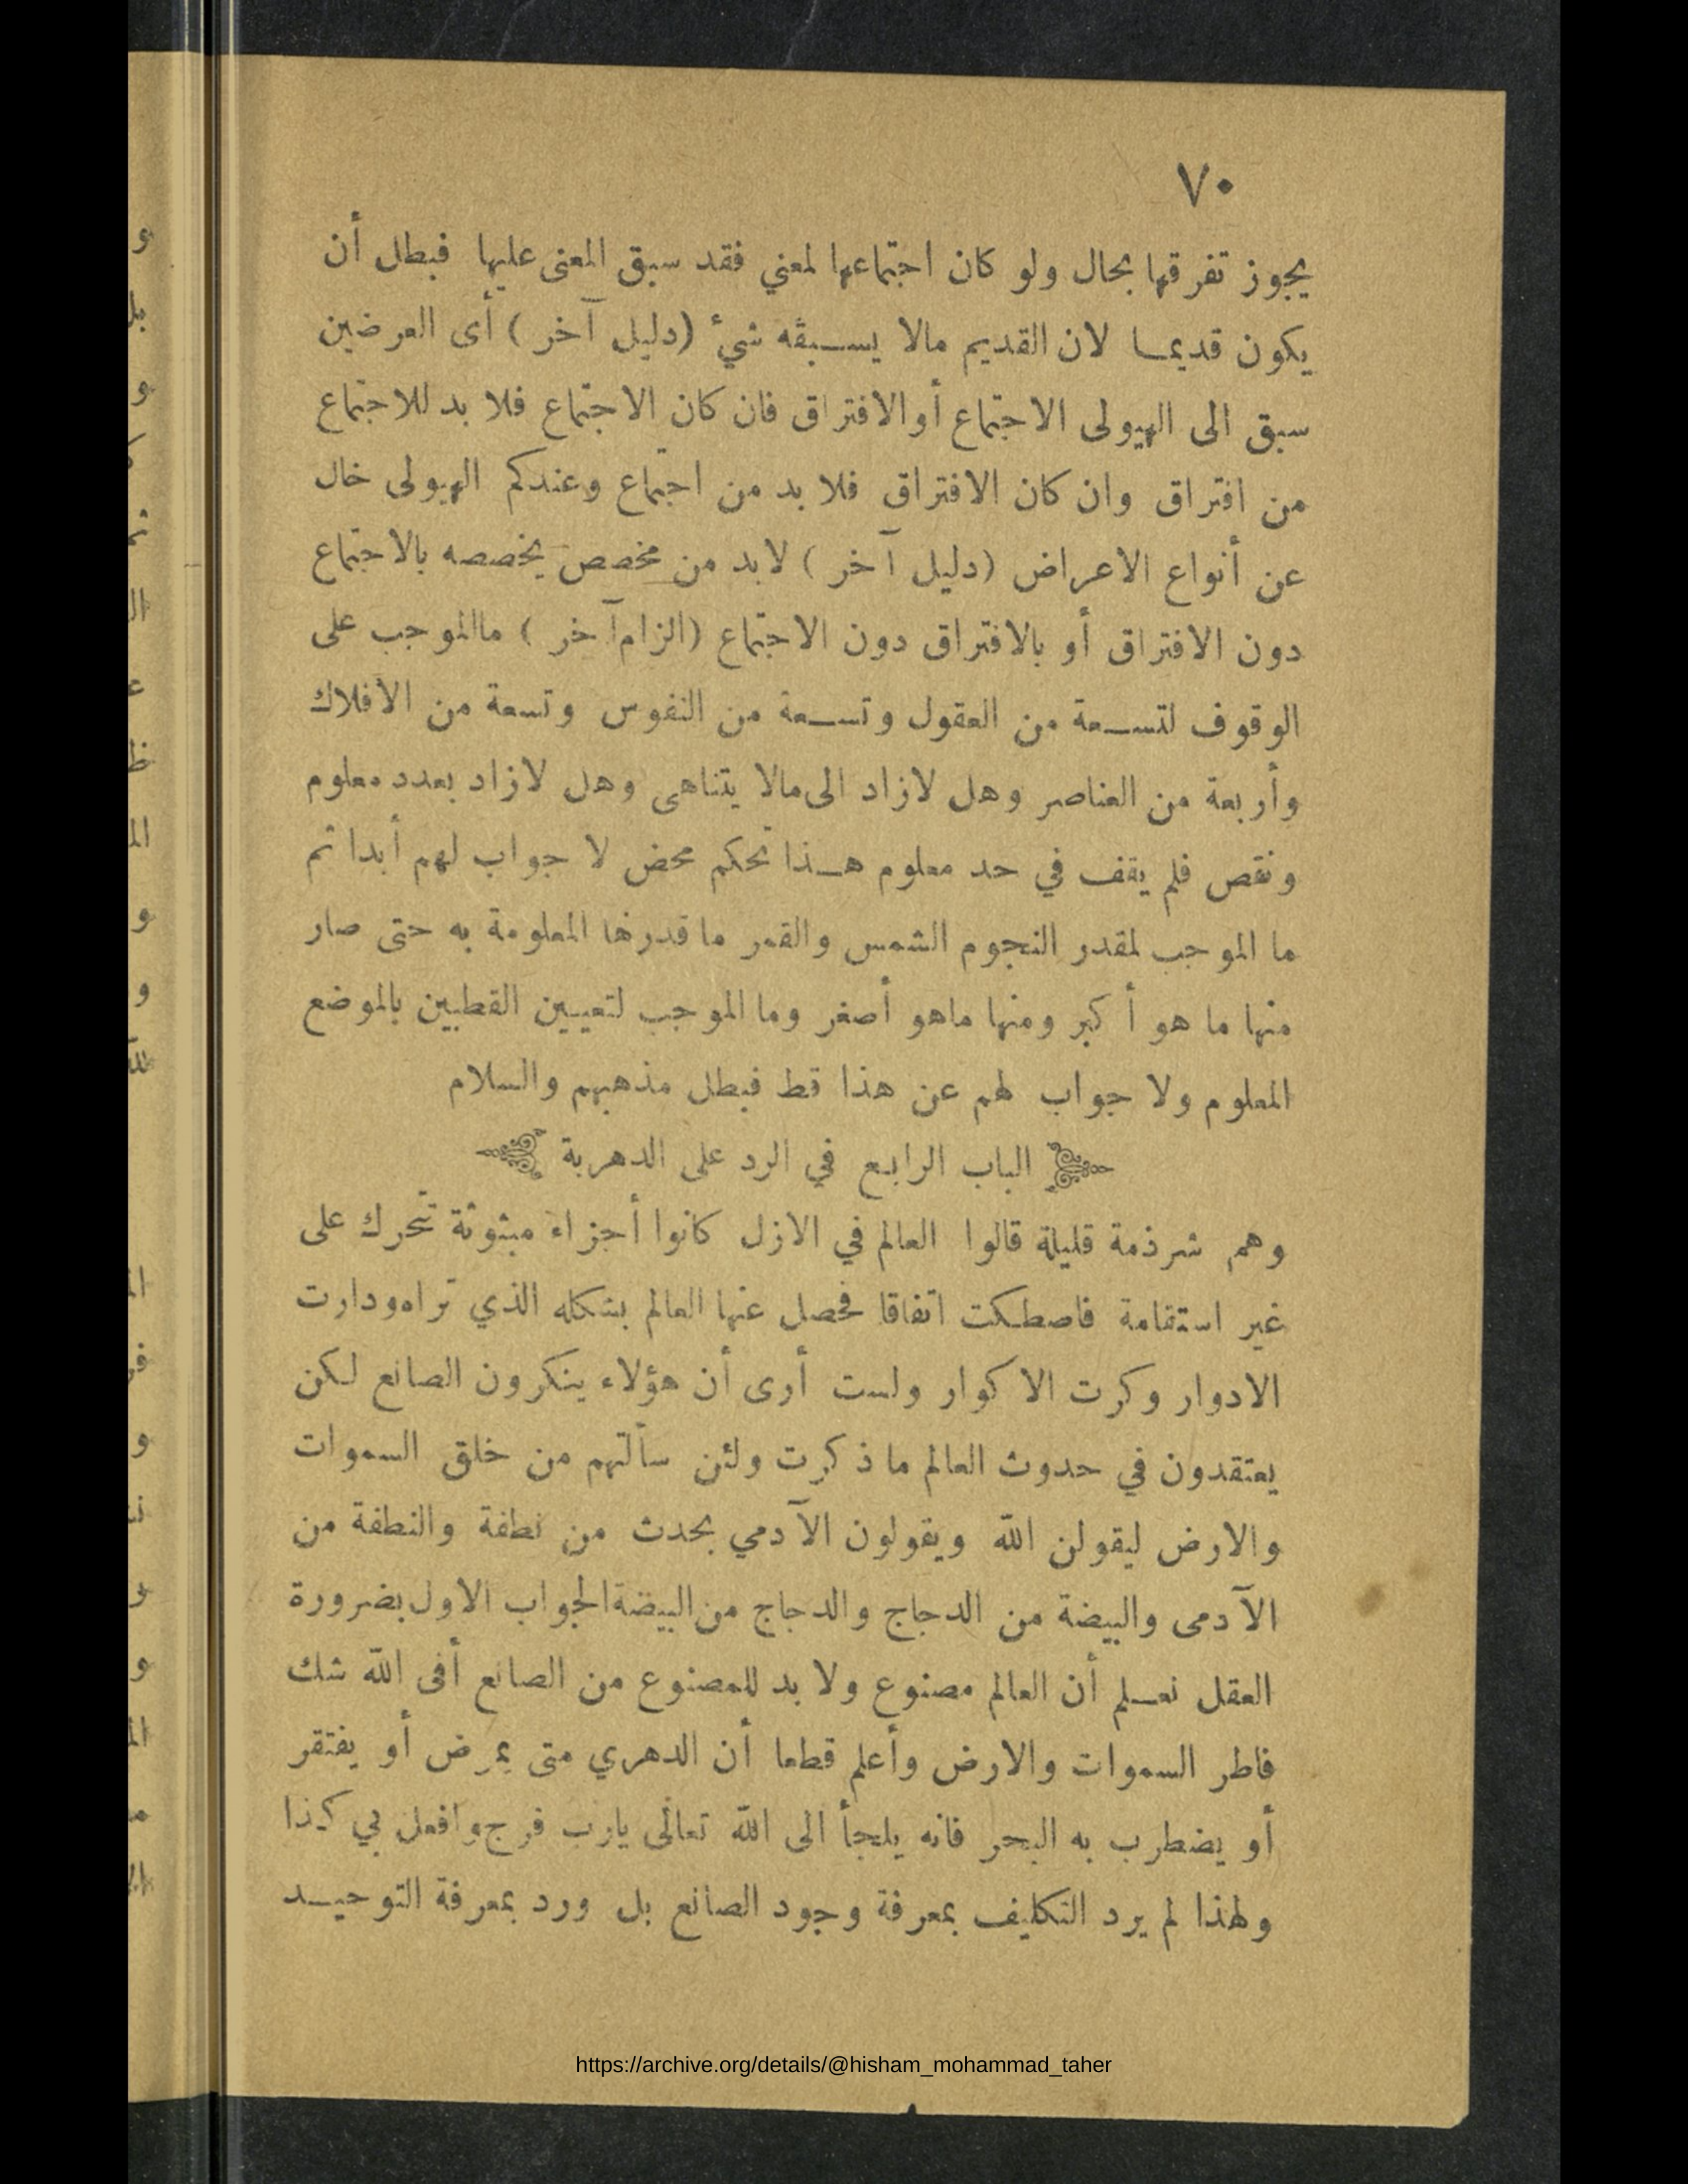 ٧٠
يجوز تفرقها بحال ولو كان اجتماعها لمعني فقد سبق المعنى عليها فبطل أن
يكون قديمـا لان القديم مالا يسـبقه شيء (دليل آخر) أى العرضين
سبق الى الهيولى الاجتماع أو الافتراق فان كان الاجتماع فلا بد للاجتماع
من افتراق وان كان الافتراق فلا بد من اجتماع وعندكم الهيولى خال
عن أنواع الاعراض (دليل آخر) لابد من مخصص يخصصه بالاجتماع
دون الافتراق أو بالافتراق دون الاجتماع (الزام آخر) ماالموجب على
الوقوف لتسـعة من العقول وتسـعة من النفوس وتسعة من الأفلاك
وأربعة من العناصر وهل لازاد الى مالا يتناهى وهل لازاد بعدد معلوم
ونقص فلم يقف في حد معلوم هـذا تحكم محض لا جواب لهم أبدا ثم
ما الموجب لمقدر النجوم الشمس والقمر ما قدرها المعلومة به حتى صار
منها ما هو أكبر ومنها ماهو أصغر وما الموجب لتعيين القطبين بالموضع
المعلوم ولا جواب لهم عن هذا قط فبطل مذهبهم والسلام
الباب الرابع في الرد على الدهرية
وهم شرذمة قليلة قالوا العالم في الازل كانوا أجزاء مبثوثة تتحرك على
غير استقامة فاصطكت اتفاقا فحصل عنها العالم بشكله الذي تراه ودارت
الادوار وكرت الاكوار ولست أرى أن هؤلاء ينكرون الصانع لكن
يعتقدون في حدوث العالم ما ذكرت ولئن سألتهم من خلق السموات
والارض ليقولن الله ويقولون الآدمي يحدث من نطفة والنطفة من
الآدمى والبيضة من الدجاج والدجاج من البيضة الجواب الاول بضرورة
العقل نعـلم أن العالم مصنوع ولا بد للمصنوع من الصانع أفى الله شك
فاطر السموات والارض وأعلم قطعا أن الدهري متى يمرض أو يفتقر
أو يضطرب به البحر فانه يلجأ الى الله تعالى يارب فرج وافعل بي كذا
ولهذا لم يرد التكليف بمعرفة وجود الصانع بل ورد بمعرفة التوحيـد
https://archive.org/details/@hisham_mohammad_taher